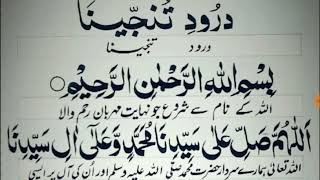 درود تُنجّینا
درود تنجینا
بِسْمِ اللّٰهِ الرَّحْمٰنِ الرَّحِیْمِ
اللہ کے نام سے شروع جو نہایت مہربان رحم والا
اَللّٰهُمَّ صَلِّ عَلٰی سَیِّدِنَا مُحَمَّدٍ وَّعَلٰۤی اٰلِ سَیِّدِنَا
اللہ تعالیٰ ہمارے سردار حضرت محمد صلی اللہ علیہ وسلم اور ان کی آل پر ایسی